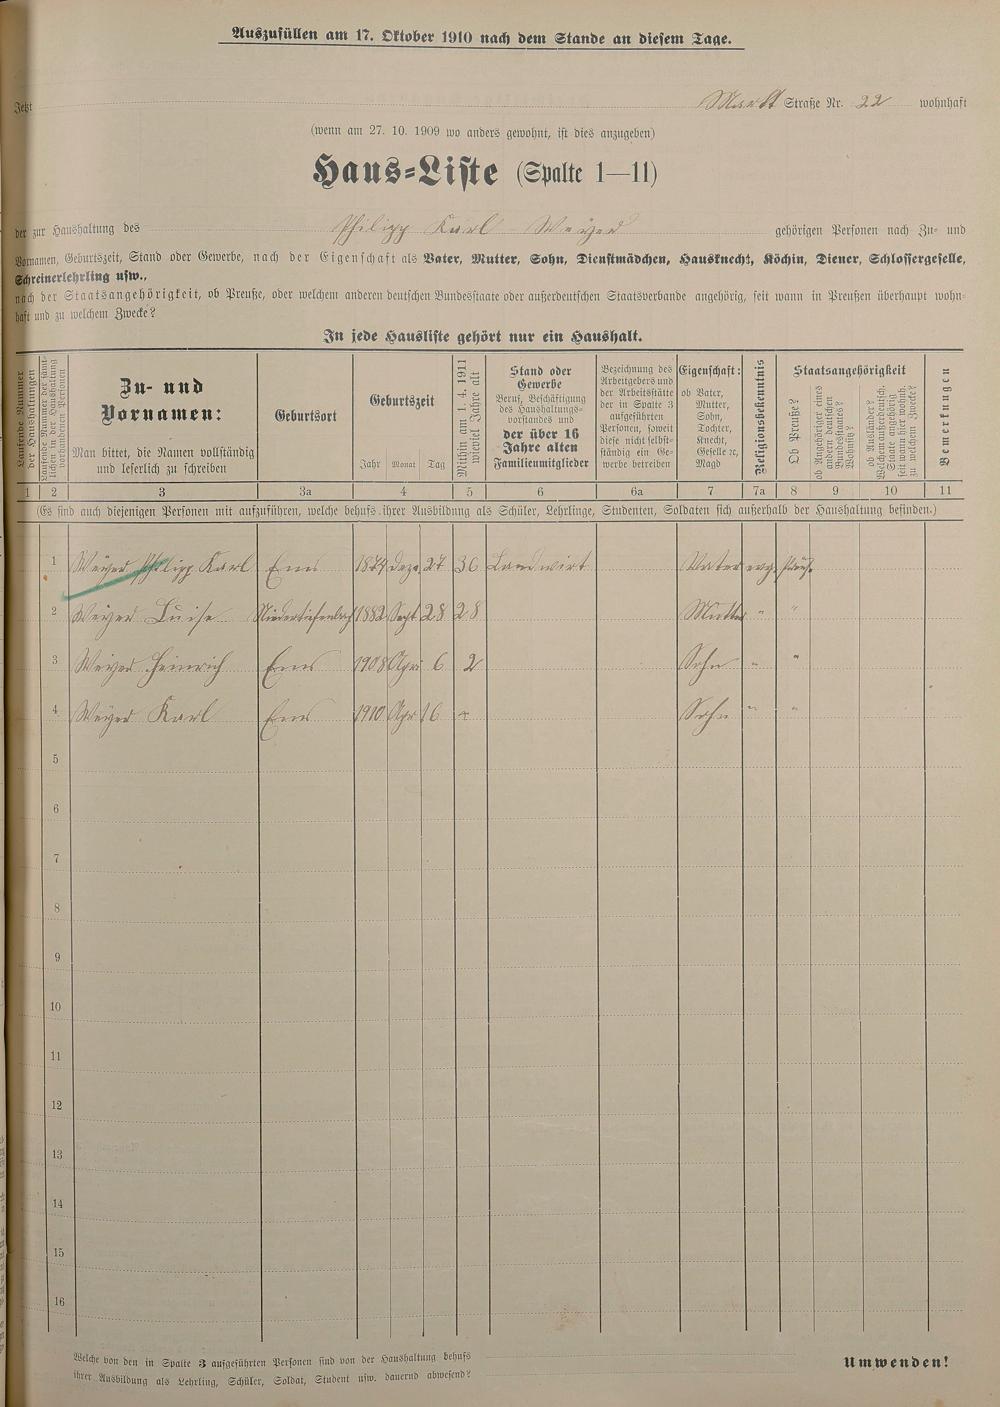 Auszufüllen am 17. Oktober 1910 nach dem Stande an diesem Tage.
Jetzt Markt Straße Nr. 22 wohnhaft
(wenn am 27. 10. 1909 wo anders gewohnt, ist dies anzugeben)
Haus-Liste (Spalte 1—11)
der zur Haushaltung des Philipp Karl Weyer gehörigen Personen nach Zu- und
Vornamen, Geburtszeit, Stand oder Gewerbe, nach der Eigenschaft als Vater, Mutter, Sohn, Dienstmädchen, Hausknecht, Köchin, Diener, Schlossergeselle,
Schreinerlehrling usw.,
nach der Staatsangehörigkeit, ob Preuße, oder welchem anderen deutschen Bundesstaate oder außerdeutschen Staatsverbande angehörig, seit wann in Preußen überhaupt wohn-
haft und zu welchem Zwecke?
In jede Hausliste gehört nur ein Haushalt.
Laufende Nummer
der Haushaltungen
Laufende Nummer der sämt-
lichen in der Haushaltung
vorhandenen Personen
Zu- und
Vornamen:
Man bittet, die Namen vollständig
und leserlich zu schreiben
Geburtsort
Geburtszeit
Jahr Monat Tag
Mithin am 1. 4. 1911
wieviel Jahre alt
Stand oder
Gewerbe
Beruf, Beschäftigung
des Haushaltungs-
vorstandes und
der über 16
Jahre alten
Familienmitglieder
Bezeichnung des
Arbeitgebers und
der Arbeitsstätte
der in Spalte 3
aufgeführten
Personen, soweit
diese nicht selbst-
ständig ein Ge-
werbe betreiben
Eigenschaft:
ob Vater,
Mutter,
Sohn,
Tochter,
Knecht,
Geselle ec,
Magd
Religionsbekenntnis
Staatsangehörigkeit
Ob Preuße?
ob Angehöriger eines
andern deutschen
Bundesstaates?
Wohnsitz?
ob Ausländer?
Welchem außerdeutsch.
Staate angehörig
seit wann hier wohnh.
zu welchem Zwecke?
Bemerkungen
1 2 3 3a 4 5 6 6a 7 7a 8 9 10 11
(Es sind auch diejenigen Personen mit aufzuführen, welche behufs ihrer Ausbildung als Schüler, Lehrlinge, Studenten, Soldaten sich außerhalb der Haushaltung befinden.)
1 Weyer Philipp Karl Ems 1874 Deze. 27 36 Landwirt Vater evg. Preuß.
2 Weyer Luise Niedertiefenbach 1882 Sept 28 28 Mutter " "
3 Weyer Heinrich Ems 1908 Apri 6 2 Sohn " "
4 Weyer Karl Ems 1910 Apr 16 Sohn " "
5
6
7
8
9
10
11
12
13
14
15
16
Welche von den in Spalte 3 aufgeführten Personen sind von der Haushaltung behufs
ihrer Ausbildung als Lehrling, Schüler, Soldat, Student usw. dauernd abwesend?
Umwenden!